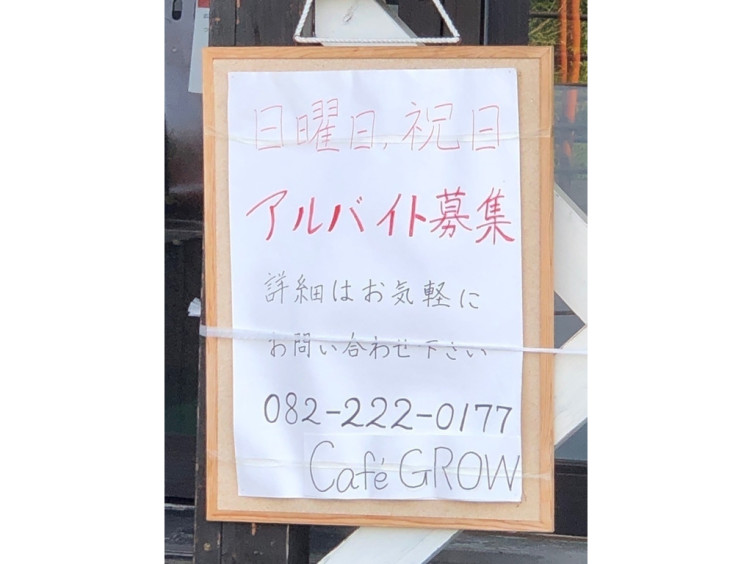 日曜日,祝日
アルバイト募集
詳細はお気軽に
お問い合わせ下さい
082-222-0177
Café GROW